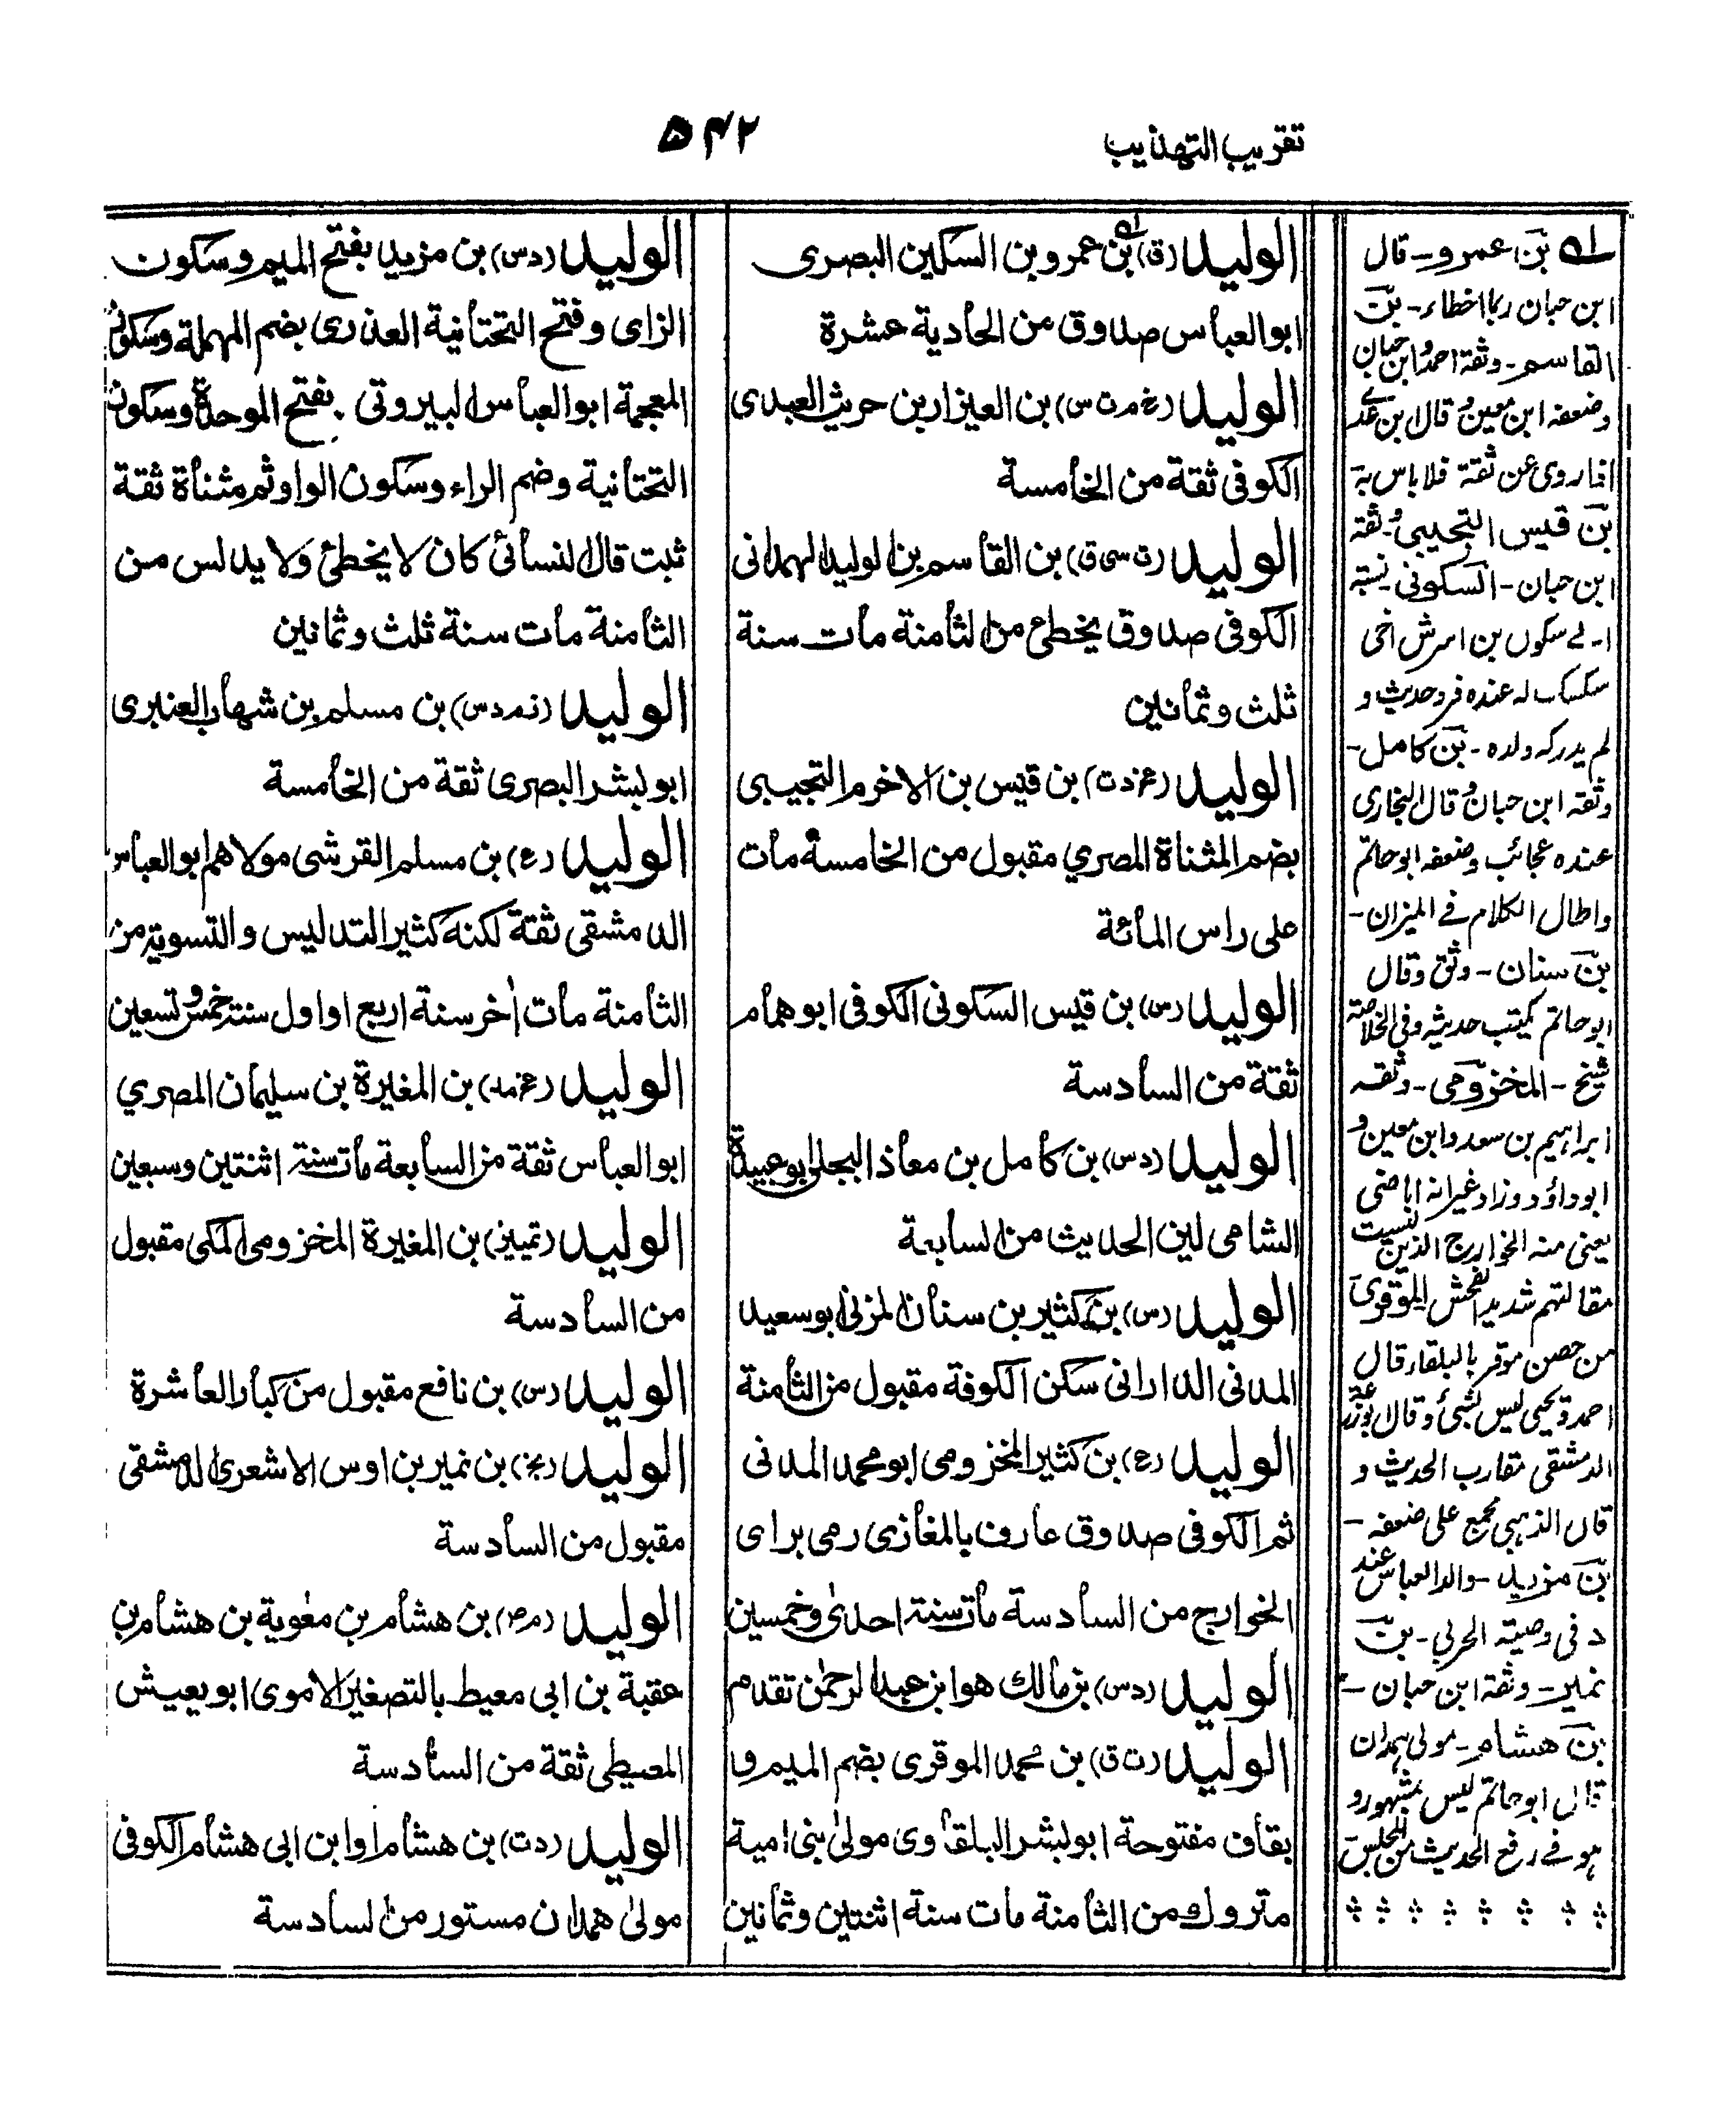 تقريب التهذيب
۵۴۲
الوليد (ق) بن عمرو بن السكين البصرى
ابوالعباس صدوق من الحادية عشرة
الوليد (خ م ت س) بن العيزار بن حريث العبدى
الكوفى ثقة من الخامسة
الوليد (ت سى ق) بن القاسم بن الوليد الهمدانى
الكوفى صدوق يخطئ من الثامنة مات سنة
ثلث وثمانين
الوليد (عخ د ت) بن قيس بن الاخرم التجيبى
بضم المثناة المصري مقبول من الخامسة مات
على راس المائة
الوليد (س) بن قيس السكونى الكوفى ابوهمام
ثقة من السادسة
الوليد (د س) بن كامل بن معاذ البجلى ابوعبيدة
الشامى لين الحديث من السابعة
الوليد (س) بن كثير بن سنان المزنى ابوسعيد
المدنى الدارانى سكن الكوفة مقبول من الثامنة
الوليد (ع) بن كثير المخزومى ابومحمد المدنى
ثم الكوفى صدوق عارف بالمغازى رمى براى
الخوارج من السادسة مات سنة احدى وخمسين
الوليد (د س) بن مالك هو ابن عبد الرحمن تقدم
الوليد (ت ق) بن محمد الموقرى بضم الميم و
بقاف مفتوحة ابوبشر البلقاوى مولى بنى امية
متروك من الثامنة مات سنة اثنتين وثمانين
الوليد (د س) بن مزيد بفتح الميم وسكون
الزاى وفتح التحتانية العذرى بضم المهملة وسكون
المعجمة ابوالعباس البيروتى بفتح الموحدة وسكون
التحتانية وضم الراء وسكون الواو ثم مثناة ثقة
ثبت قال النسائى كان لا يخطئ ولا يدلس من
الثامنة مات سنة ثلث وثمانين
الوليد (ز م د س) بن مسلم بن شهاب العنبرى
ابوبشر البصرى ثقة من الخامسة
الوليد (ع) بن مسلم القرشى مولاهم ابوالعباس
الدمشقى ثقة لكنه كثير التدليس والتسوية من
الثامنة مات اٰخر سنة اربع او اول سنة خمس وتسعين
الوليد (عخ مد) بن المغيرة بن سليمان المصري
ابوالعباس ثقة من السابعة مات سنة اثنتين وسبعين
الوليد (تمييز) بن المغيرة المخزومى المكى مقبول
من السادسة
الوليد (س) بن نافع مقبول من كبار العاشرة
الوليد (بخ) بن نمير بن اوس الاشعرى الدمشقى
مقبول من السادسة
الوليد (م ص) بن هشام بن معوية بن هشام بن
عقبة بن ابى معيط بالتصغير الاموى ابويعيش
المعيطى ثقة من السادسة
الوليد (د ت) بن هشام او ابن ابى هشام الكوفى
مولى همدان مستور من السادسة
له بن عمرو ـ قال
ابن حبان ربما اخطاء ـ بن
القاسم ـ وثقه احمد وابن حبان
وضعفه ابن معين وقال ابن عدى
اذا روى عن ثقة فلا باس به
بن قيس التجيبى ـ ثقه
ابن حبان ـ السكونى نسبة
الى سكون بن اشرش اخى
سكسك له عنده فرد حديث و
لم يدركه ولده ـ بن كامل ـ
وثقه ابن حبان وقال البخارى
عنده عجائب وضعفه ابوحاتم
واطال الكلام فى الميزان ـ
بن سنان ـ وثق وقال
ابوحاتم يكتب حديثه وفى الخلاصة
شيخ ـ المخزومى ـ وثقه
ابراهيم بن سعد وابن معين و
ابوداؤد وزاد غير انه اباضى
يعنى منه الخوارج الذين ليست
مقالتهم شديد الفحش الموقرى
من حصن موقر بالبلقاء قال
احمد ويحيى ليس بشئ وقال ابوزرعة
الدمشقى متقارب الحديث و
قال الذهبى مجمع على ضعفه ـ
بن مزيد ـ والد العباس عند
د فى وصية الحربى ـ بن
نمير ـ وثقه ابن حبان ـ
بن هشام ـ مولى همدان
قال ابوحاتم ليس بمشهور و
هو فى رفع الحديث من المجلس